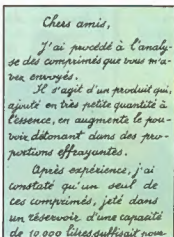 Chers amis,
J'ai procédé à l'analy-
se des comprimés que vous m'a-
vez envoyés.
Il s'agit d'un produit qui,
ajouté en très petite quantité à
l'essence, en augmente le pou-
voir détonant dans des pro-
portions effrayantes.
Après expérience, j'ai
constaté qu'un seul de
ces comprimés, jeté dans
un réservoir d'une capacité
de 10.000 litres, suffisait pour